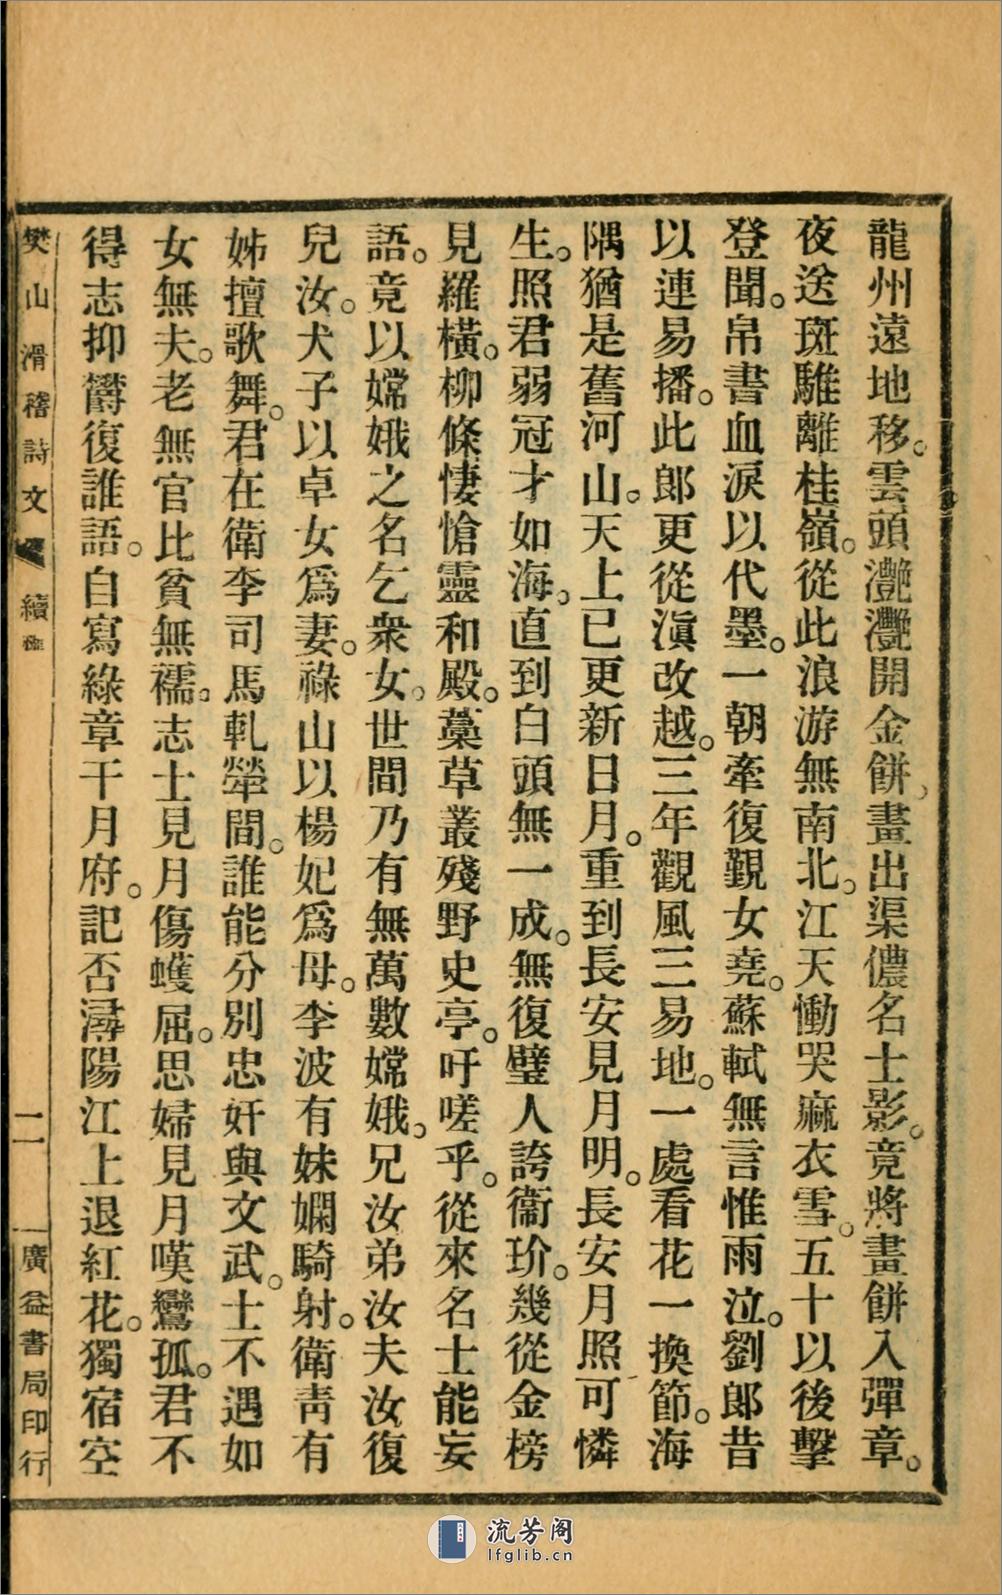 龍州遠地移。雲頭灧灧開金餅、畫出渠儂名士影。竟將畫餅入彈章。
夜送斑騅離桂嶺。從此浪游無南北。江天慟哭麻衣雪。五十以後擊
登聞。帛書血淚以代墨。一朝牽復覲女堯。蘇軾無言惟雨泣。劉郎昔
以連易播。此郎更從滇改越。三年觀風三易地。一處看花一換節。海
隅猶是舊河山。天上已更新日月。重到長安見月明。長安月照可憐
生。照君弱冠才如海。直到白頭無一成。無復璧人誇衞玠。幾從金榜
見羅橫。柳條悽愴靈和殿。藁草叢殘野史亭。吁嗟乎。從來名士能妄
語。竟以嫦娥之名乞衆女。世間乃有無萬數嫦娥。兄汝弟汝夫汝復
兒汝。犬子以卓女爲妻。祿山以楊妃爲母。李波有妹嫻騎射。衛青有
姊擅歌舞。君在衛李司馬軋犖間。誰能分別忠奸與文武。士不遇如
女無夫。老無官比貧無襦。志士見月傷蠖屈。思婦見月嘆鸞孤。君不
得志抑鬱復誰語。自寫綠章干月府。記否潯陽江上退紅花。獨宿空
樊山滑稽詩文 續 二一 廣益書局印行
流芳阁
lfglib.cn